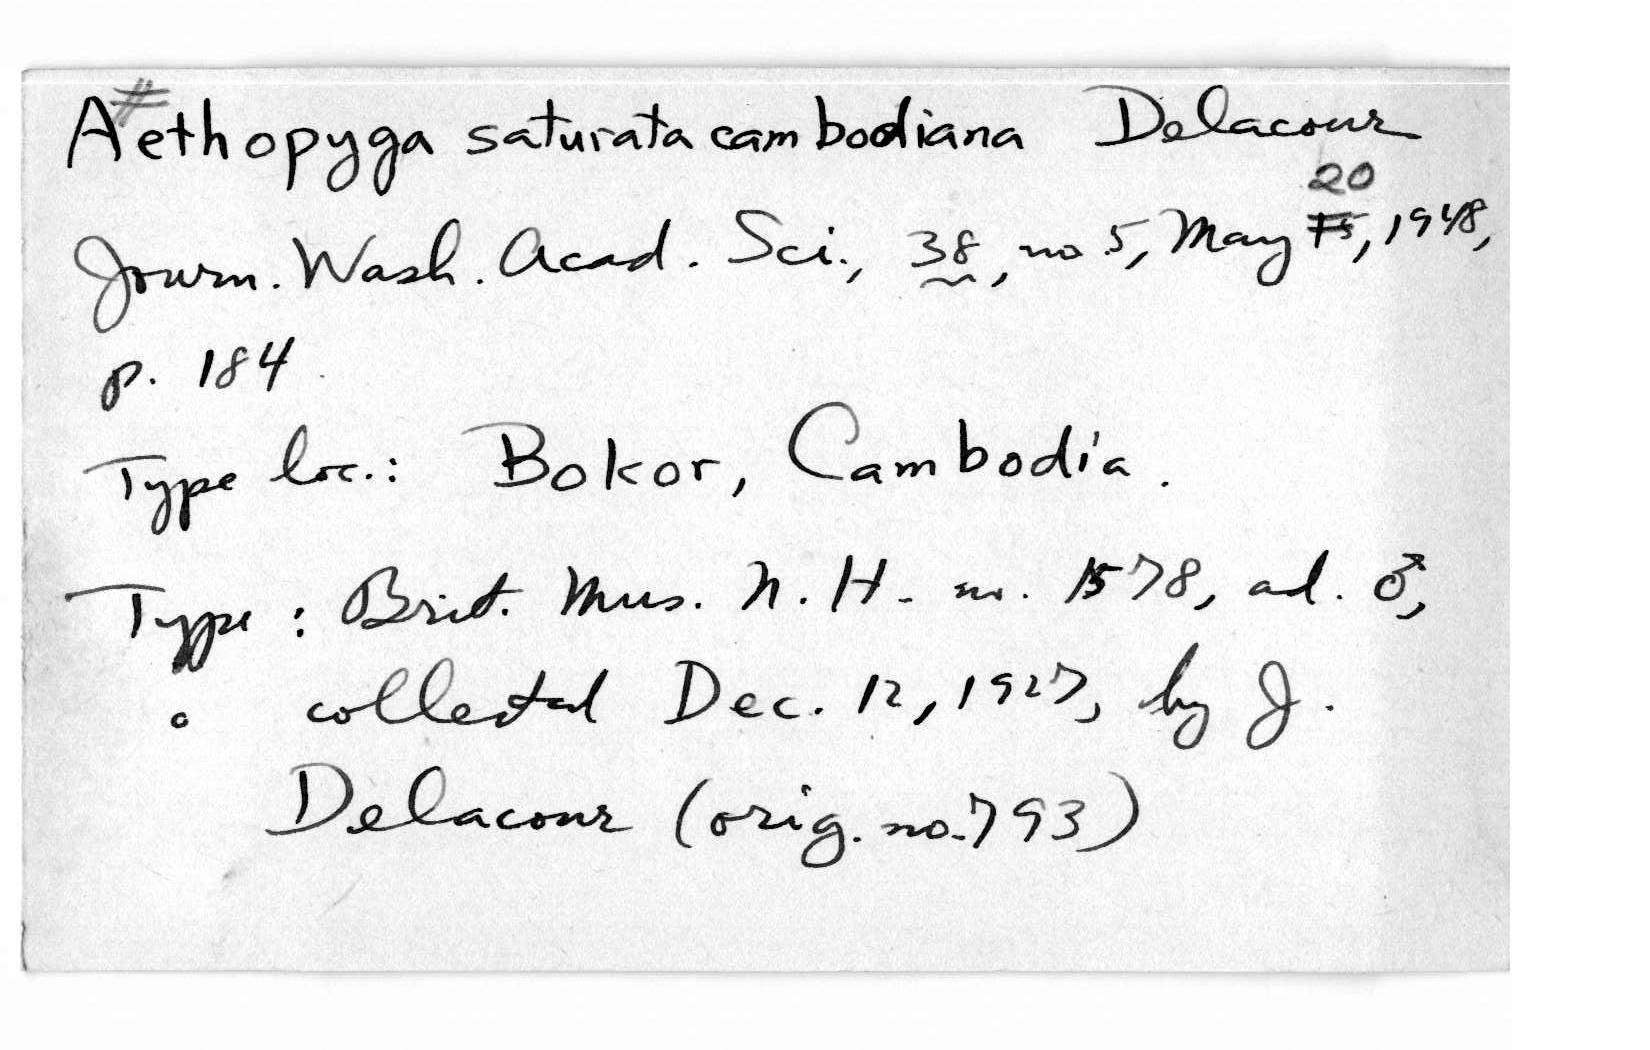 Aethopyga saturata cambodiana Delacour
20
Journ. Wash. Acad. Sci., 38, no 5, May 15, 1948,
p. 184
Type loc.: Bokor, Cambodia.
Type: Brit. Mus. N. H. no. 1578, ad. ♂,
collected Dec. 12, 1927, by J.
Delacour (orig. no. 793)